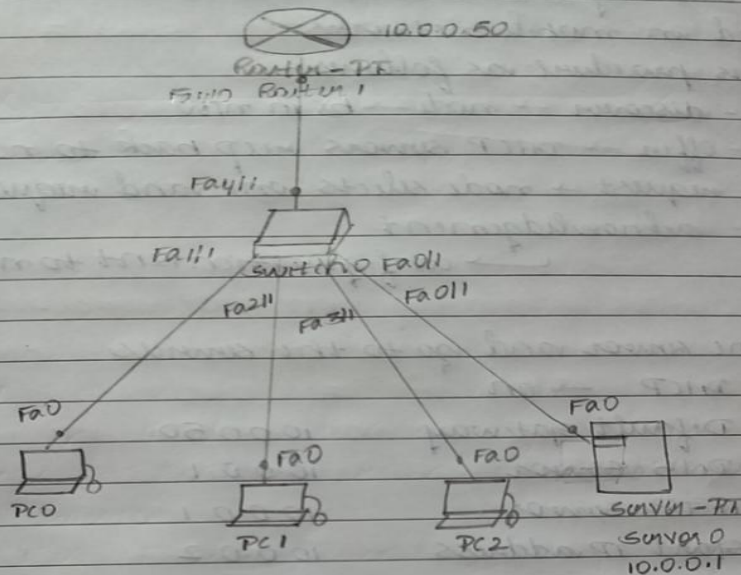 10.0.0.50
Router-PT
Router 1
Fa4/1
Fa1/1
Switch0 Fa0/1
Fa2/1
Fa3/1
Fa0/1
Fa0
Fa0
Fa0
Fa0
PC0
PC1
PC2
Server-PT
Server 0
10.0.0.1